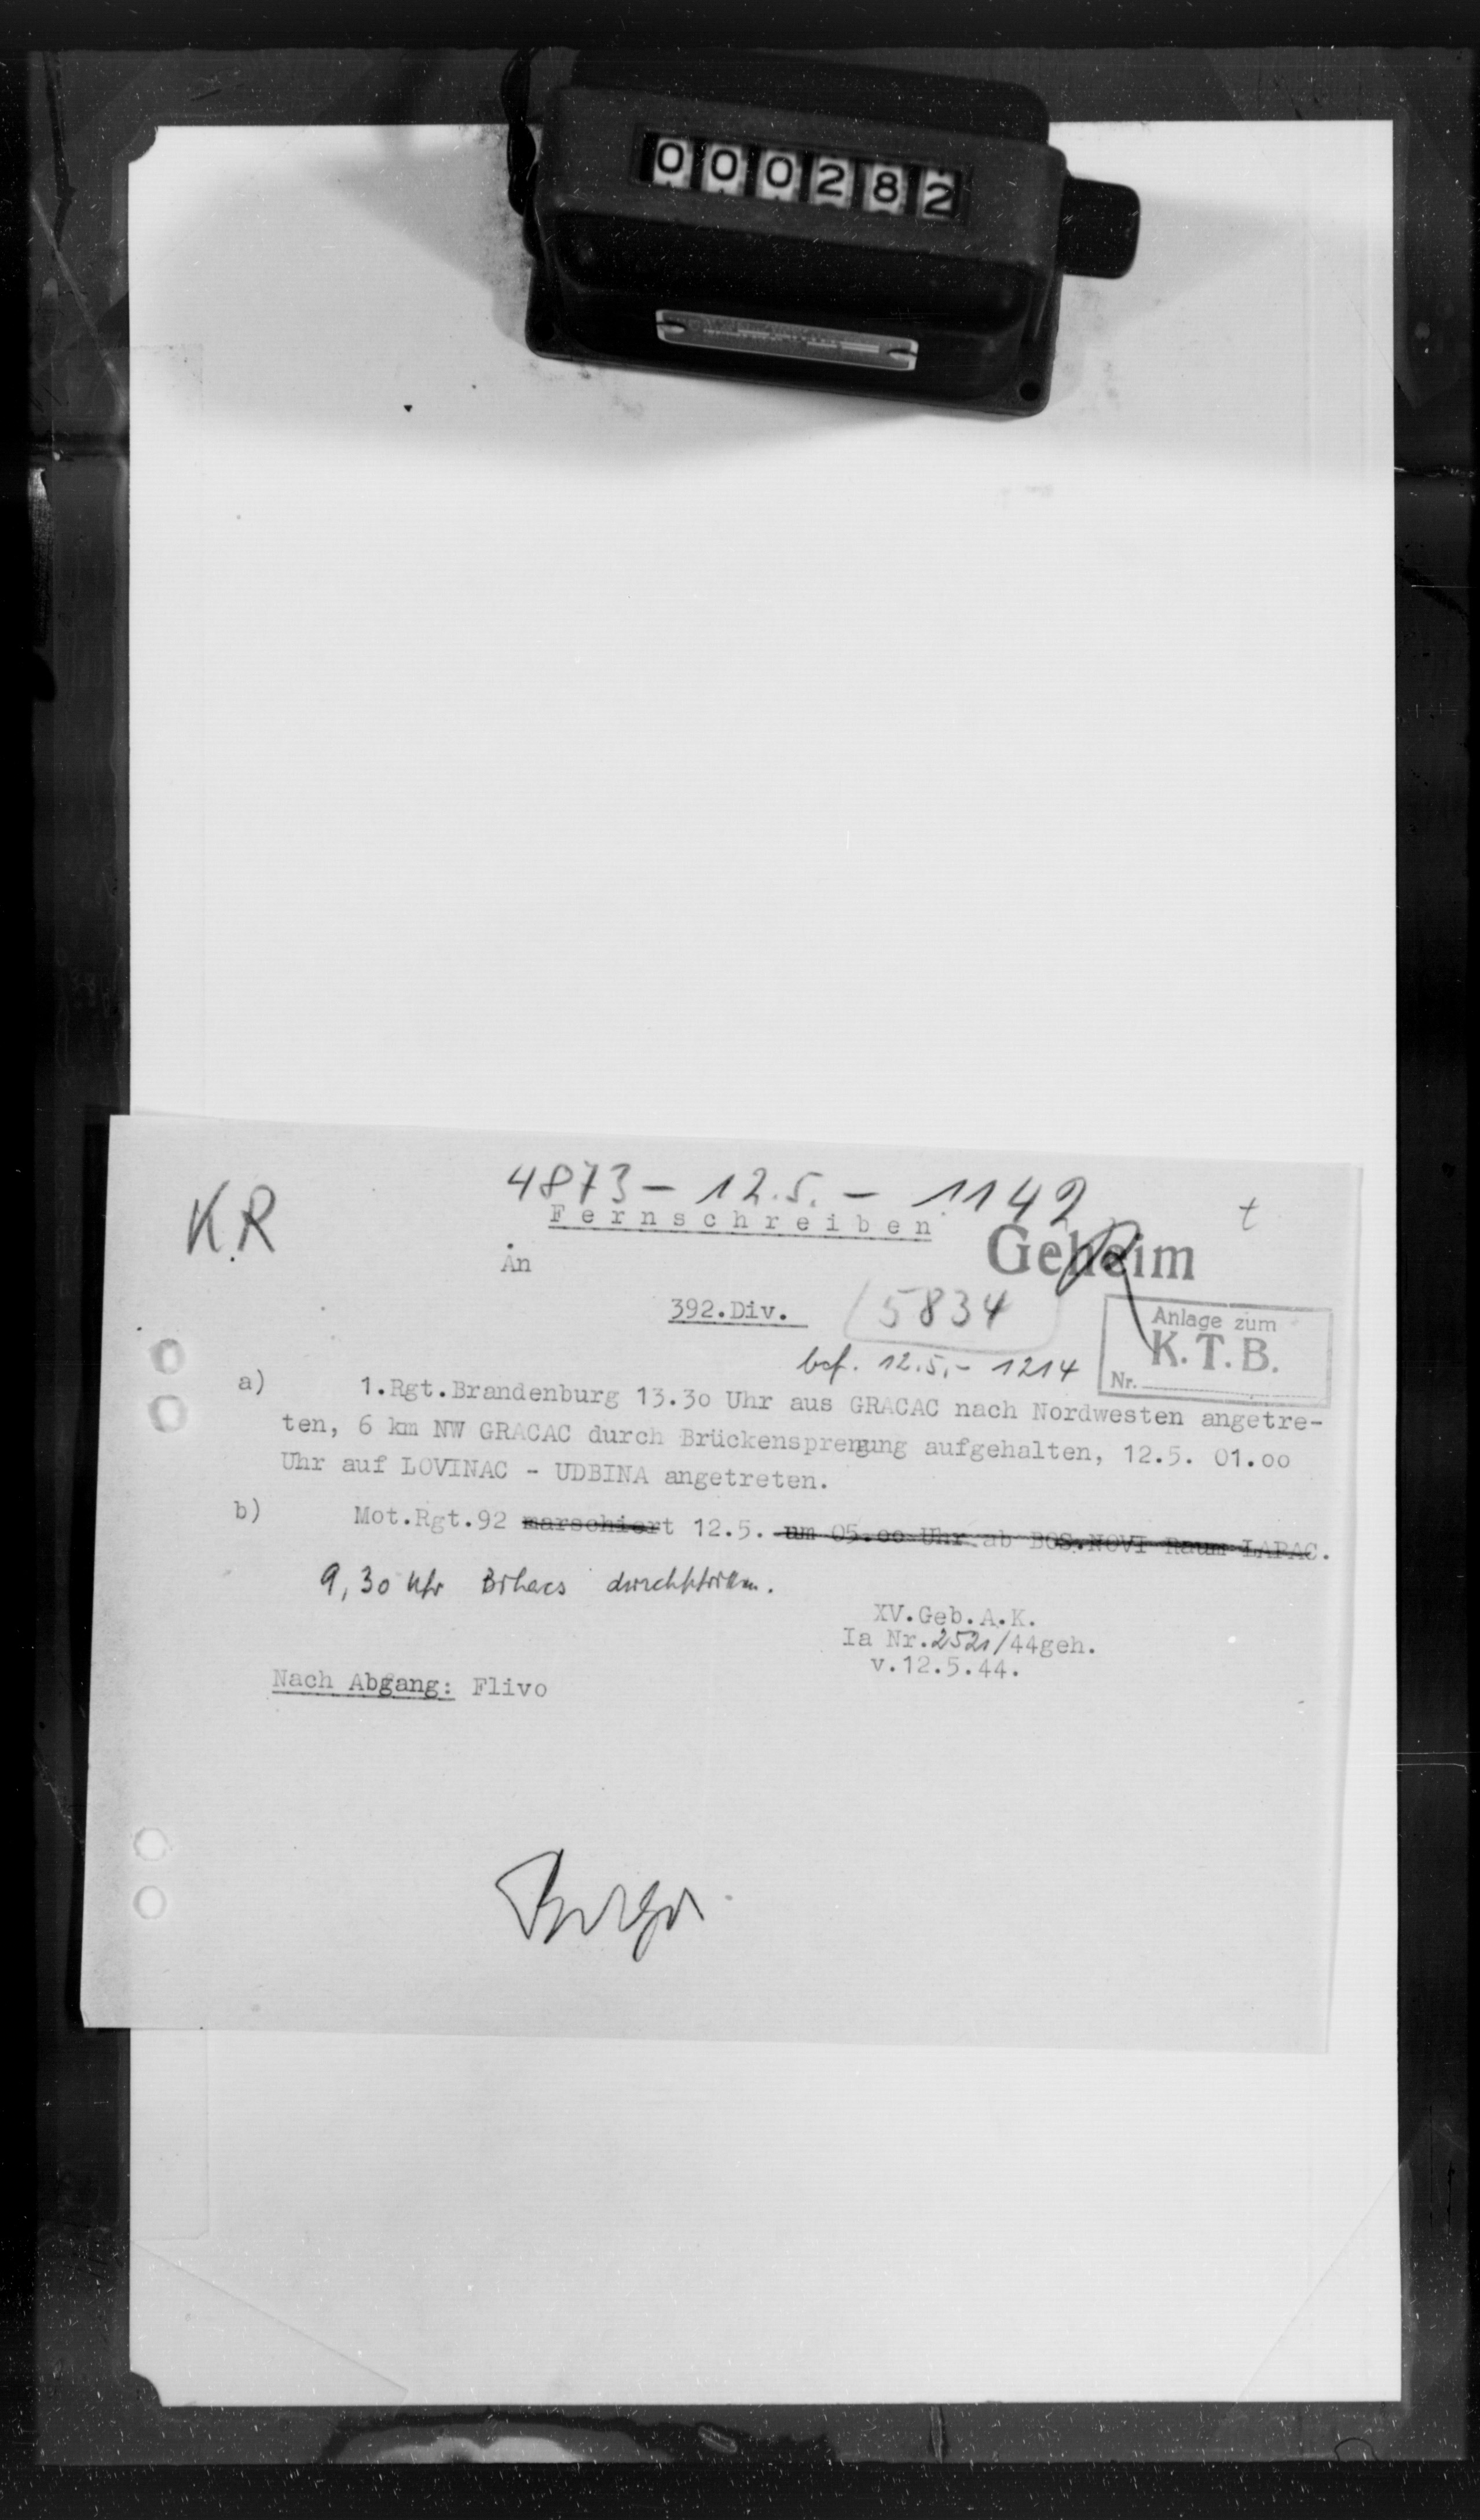 000282
4873 - 12.5. - 1142
KR
Fernschreiben
t
An
Geheim
392.Div.
5834
Anlage zum
K.T.B.
Nr.
bef. 12.5. - 1214
a) 1.Rgt.Brandenburg 13.30 Uhr aus GRACAC nach Nordwesten angetre-
ten, 6 km NW GRACAC durch Brückensprengung aufgehalten, 12.5. 01.00
Uhr auf LOVINAC - UDBINA angetreten.
b) Mot.Rgt.92 marschiert 12.5. um 05.00 Uhr ab BOS.NOVI Raum LAPAC.
9,30 Uhr Bihacs durchschritten.
XV.Geb.A.K.
Ia Nr.2521/44geh.
v.12.5.44.
Nach Abgang: Flivo